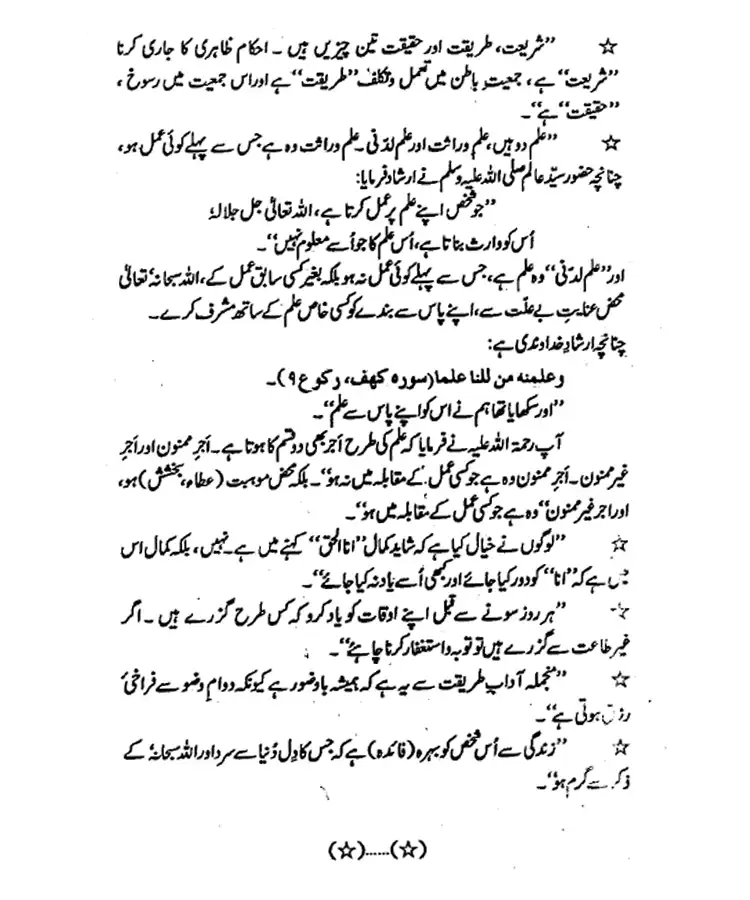 ☆ ”شریعت، طریقت اور حقیقت تین چیزیں ہیں ۔ احکام ظاہری کا جاری کرنا
”شریعت“ ہے، جمعیتِ باطن میں تعمل و تکلف ”طریقت“ ہے اور اس جمعیت میں رسوخ،
”حقیقت“ ہے“۔
☆ ”علم دو ہیں، علمِ وراثت اور علمِ لدنی ۔ علم وراثت وہ ہے جس سے پہلے کوئی عمل ہو،
چنانچہ حضور سیّد عالم صلی اللہ علیہ وسلم نے ارشاد فرمایا:
”جو شخص اپنے علم پر عمل کرتا ہے، اللہ تعالیٰ جل جلالہٗ
اُس کو وارث بناتا ہے، اُس علم کا جو اُسے معلوم نہیں“۔
اور ”علم لدنی“ وہ علم ہے، جس سے پہلے کوئی عمل نہ ہو بلکہ بغیر کسی سابق عمل کے، اللہ سبحانہٗ تعالیٰ
محض عنایتِ بے علّت سے، اپنے پاس سے بندے کو کسی خاص علم کے ساتھ مشرف کرے۔
چنانچہ ارشادِ خداوندی ہے:
وعلمنه من للنا علما (سورہ کہف، رکوع ۹)۔
”اور سکھایا تھا ہم نے اس کو اپنے پاس سے علم“۔
آپ رحمۃ اللہ علیہ نے فرمایا کہ علم کی طرح اَجر بھی دو قسم کا ہوتا ہے۔ اَجرِ ممنون اور اَجرِ
غیر ممنون۔ اَجرِ ممنون وہ ہے جو کسی عمل کے مقابلہ میں نہ ہو“۔ بلکہ محض موہبت (عطاء، بخشش) ہو،
اور اجر غیر ممنون“ وہ ہے جو کسی عمل کے مقابلہ میں ہو“۔
☆ ”لوگوں نے خیال کیا ہے کہ شاید کمال ”انا الحق“ کہنے میں ہے۔ نہیں، بلکہ کمال اس
میں ہے کہ ”انا“ کو دور کیا جائے اور کبھی اُسے یاد نہ کیا جائے“۔
☆ ”ہر روز سونے سے قبل اپنے اوقات کو یاد کرو کہ کس طرح گزرے ہیں ۔ اگر
غیر طاعت سے گزرے ہیں تو توبہ و استغفار کرنا چاہئے“۔
☆ ”منجملہ آداب طریقت سے یہ ہے کہ ہمیشہ باوضو رہے کیونکہ دوامِ وضو سے فراخیٔ
رزق ہوتی ہے“۔
☆ ”زندگی سے اُس شخص کو بہرہ (فائدہ) ہے کہ جس کا دِل دُنیا سے سرد اور اللہ سبحانہٗ کے
ذکر سے گرم ہو“۔
(☆)......(☆)